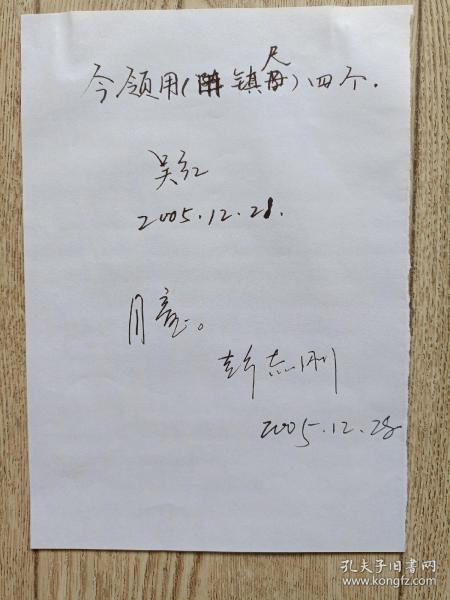 今领用(镇尺)四个.
吴红
2005.12.28.
同意。
彭志刚
2005.12.28
孔夫子旧书网
www.kongfz.com